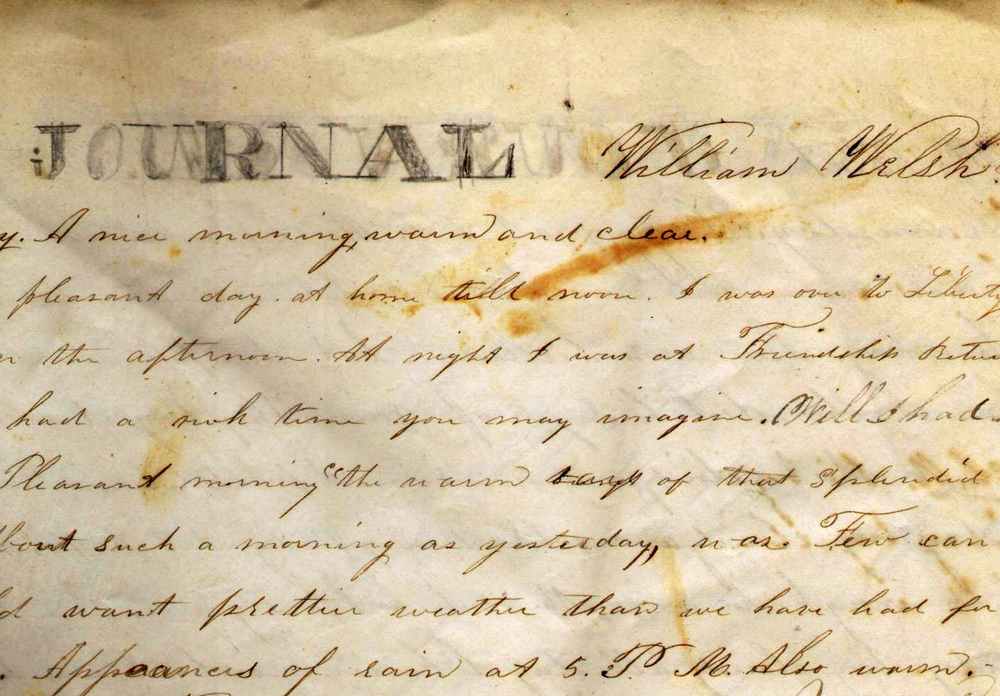 JOURNAL William Welsh
y. A nice morning, warm and clear.
pleasant day. at home till noon. I was over to Liberty
the afternoon. At night I was at Friendship
had a rich time you may imagine. Will I had
Pleasant morning "the warm of that splendid
bout such a morning as yesterday, was. Few can
d want prettier weather than we have had for
Appeances of rain at 5. P. M. Also warm.